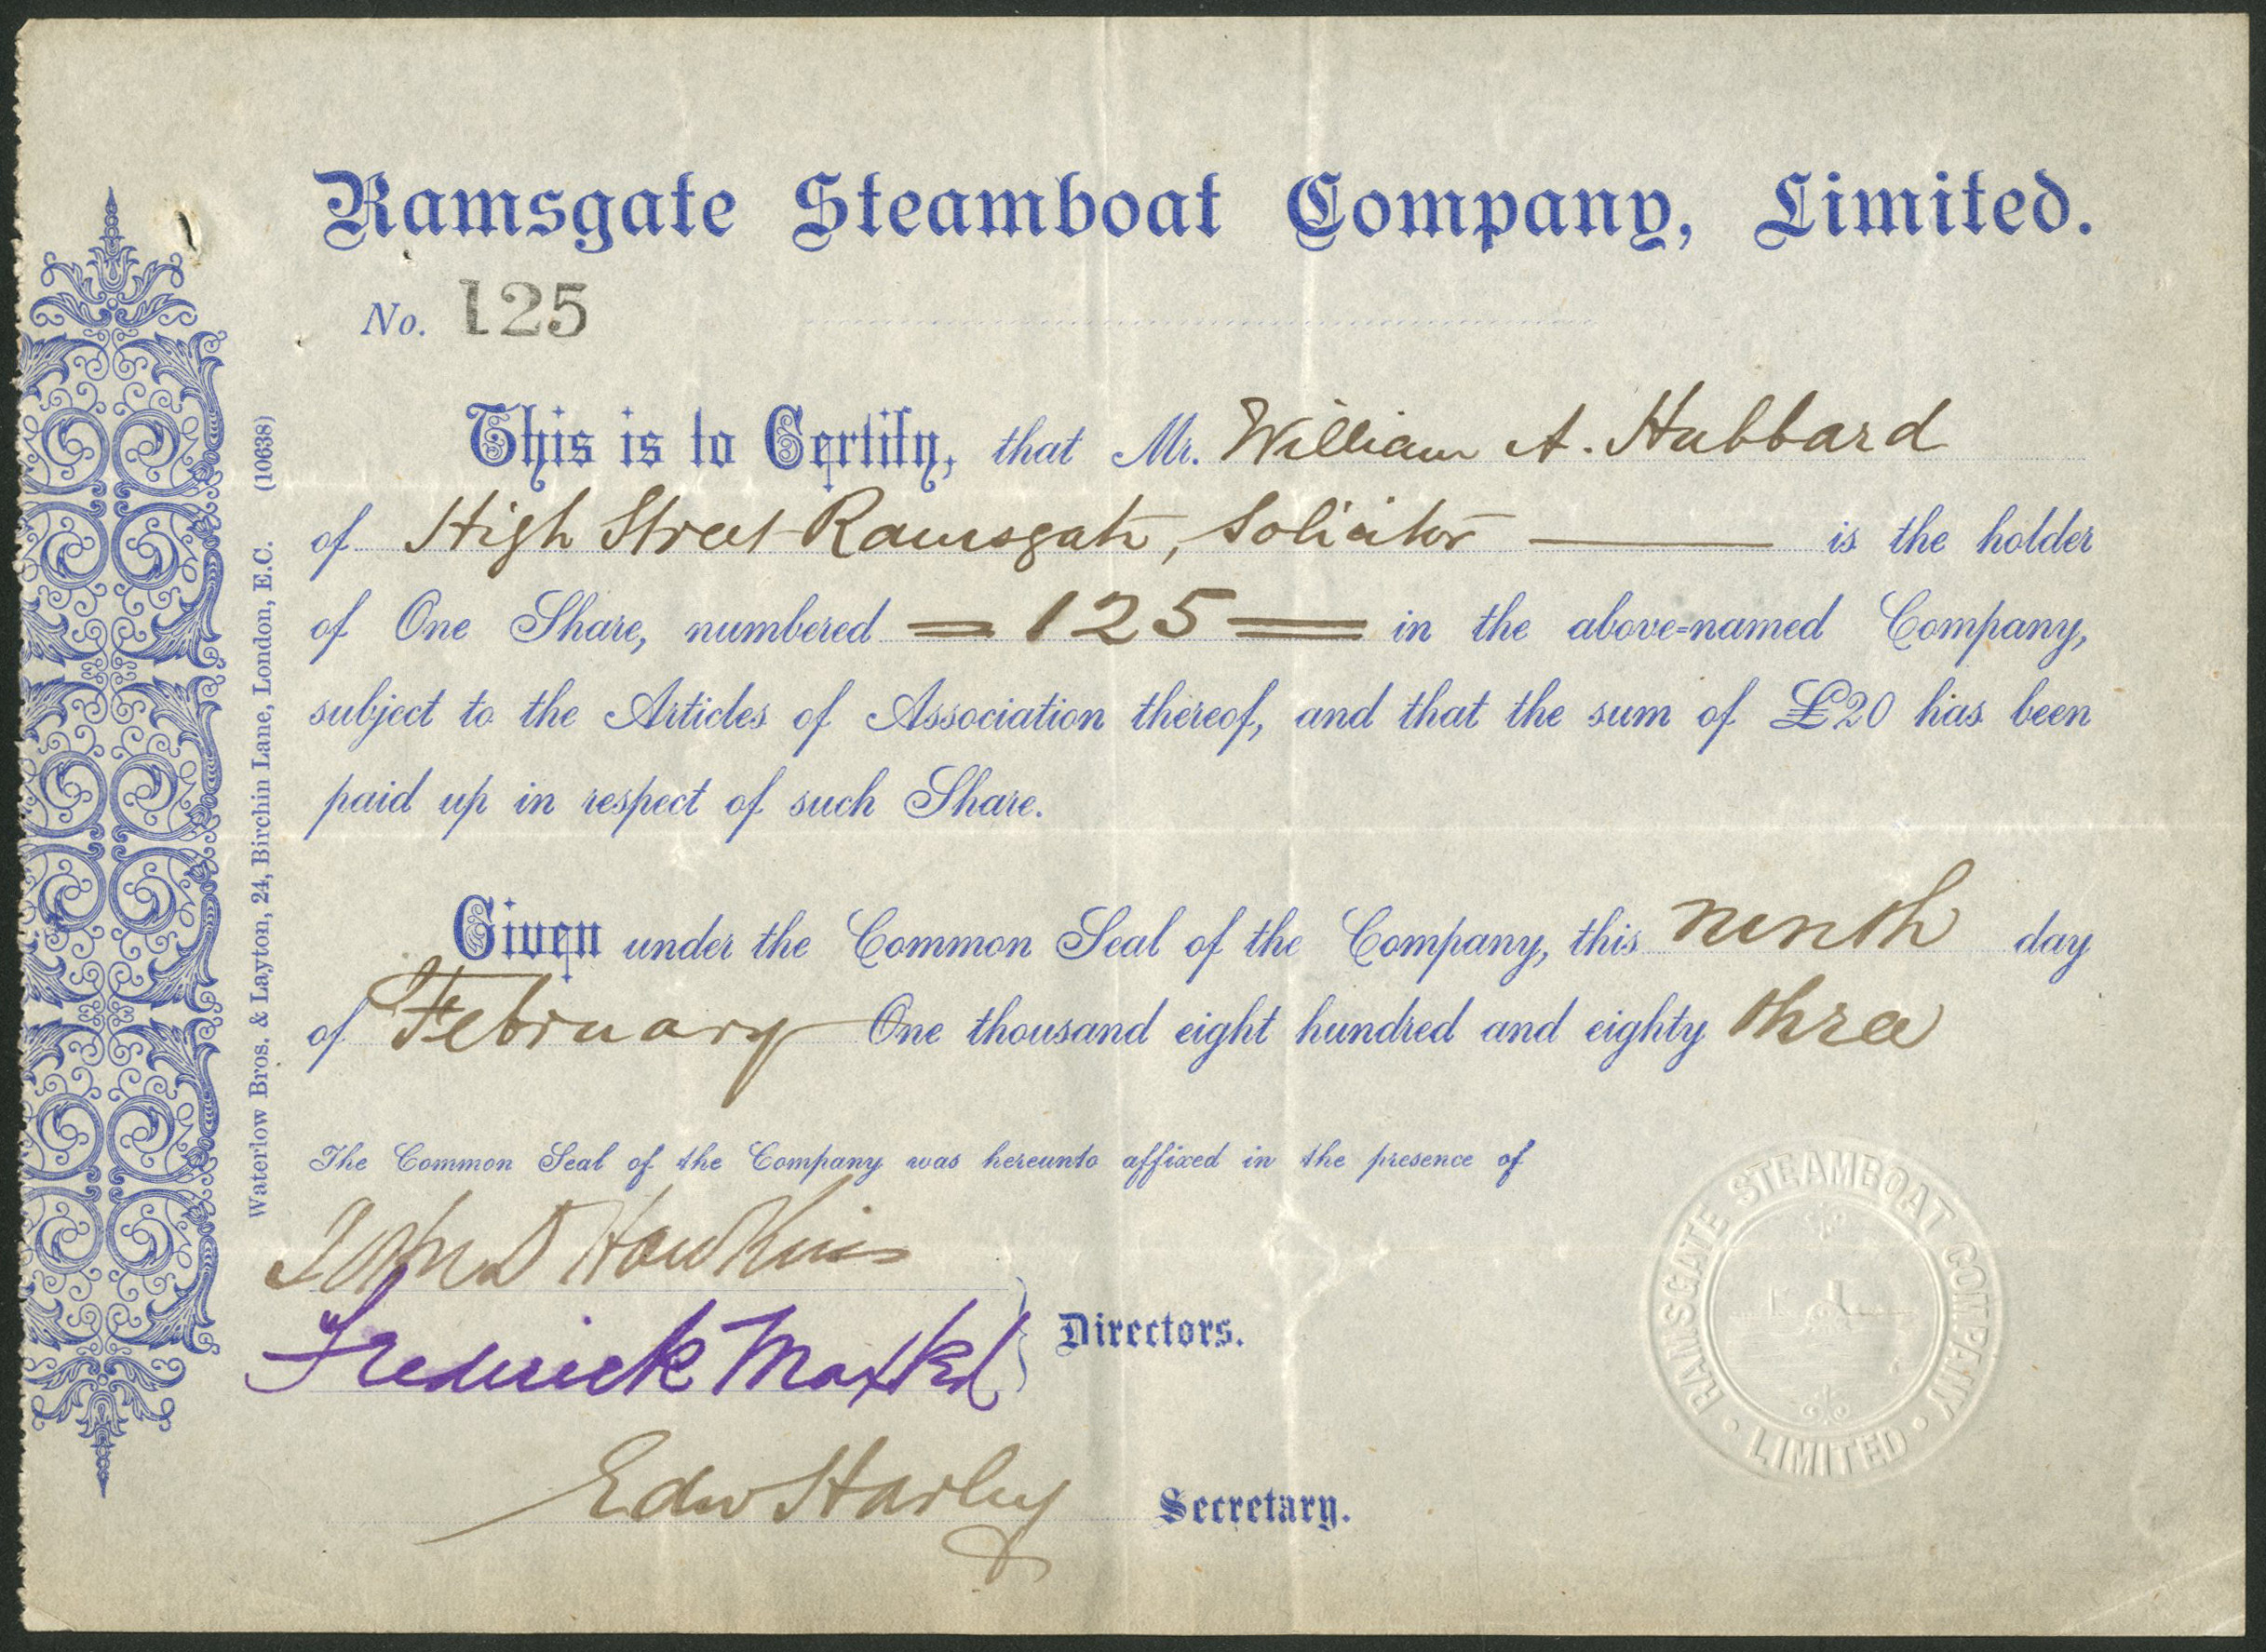 Ramsgate Steamboat Company, Limited.
No. 125
This is to Certify, that Mr. William A. Hubbard
of High Street Ramsgate, Solicitor is the holder
of One Share, numbered = 125 = in the above-named Company,
subject to the Articles of Association thereof, and that the sum of £20 has been
paid up in respect of such Share.
Given under the Common Seal of the Company, this ninth day
of February One thousand eight hundred and eighty three
The Common Seal of the Company was hereunto affixed in the presence of
John D Hawkins
Frederick
Directors.
Edw Harley
Secretary.
RAMSGATE STEAMBOAT COMPANY
LIMITED
Waterlow Bros. & Layton, 24, Birchin Lane, London, E.C. (10638)